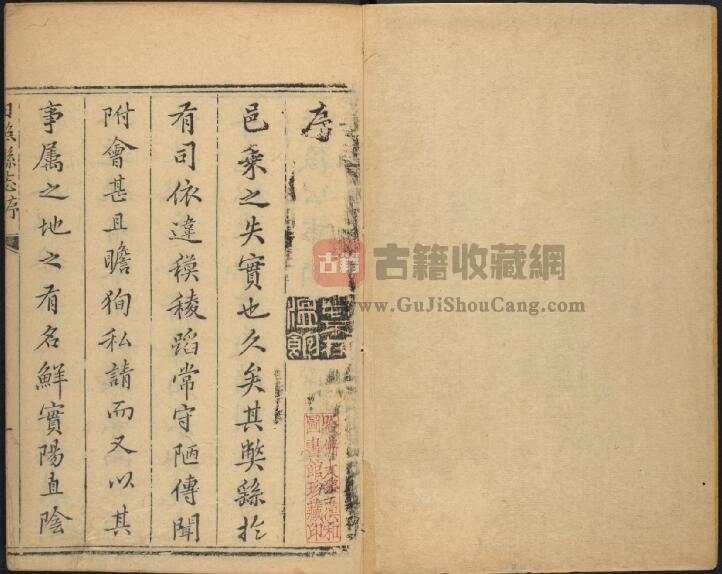 序
邑乘之失實也久矣其獘繇於
有司依違積稜蹈常守陋傳聞
附會甚且瞻狥私請而又以其
事属之地之有名鮮實陽直陰
日照縣志序
哈佛大學漢和
圖書館珍藏印
古籍
古籍收藏網
www.GuJiShouCang.com